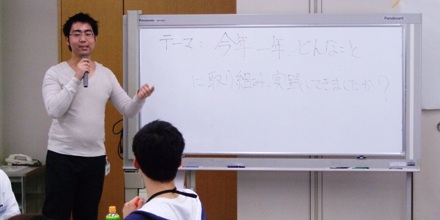 Panasonic
Panaboard
テーマ：今年一年どんなこと
に取り組み、実践してきましたか？